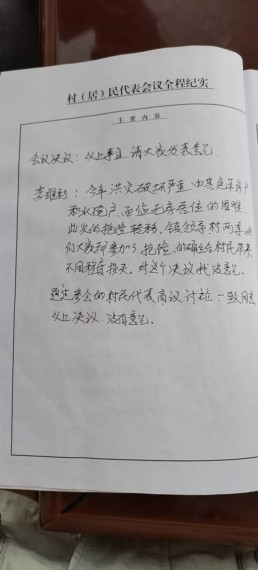 村（居）民代表会议全程纪实
主要内容
会议决议：以上事宜，请大家发表意见。
李维利：今年洪灾破坏严重，尤其危草房户
积水掩户，面临无房居住的困难，
此次的抢险 救援，镇领导村两委
们大家都参加了抢险，的确给全村民带来
不同程度损失。对这个决议我没意见。
通过参会的村民代表商议讨论一致同意
以上决议 没有意见。